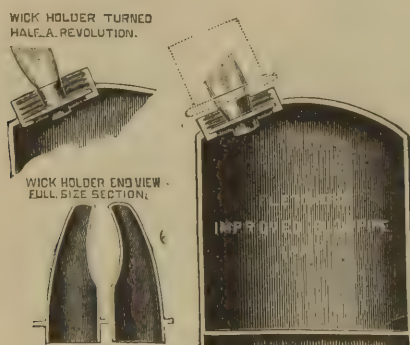 WICK HOLDER TURNED
HALF_A_REVOLUTION.
WICK HOLDER END VIEW.
FULL SIZE SECTION.
IMPROVED BLOWPIPE